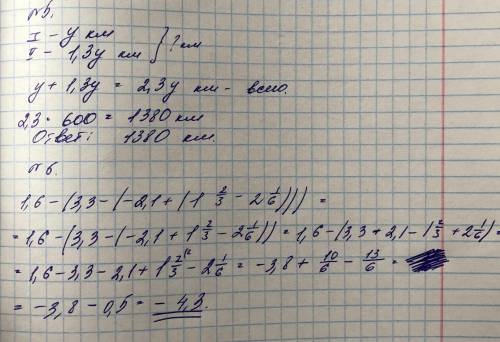 №5.
I – y км
II – 1,3y км } ? км
y + 1,3y = 2,3y км – всего.
2,3 · 600 = 1380 км
Ответ: 1380 км.
№6.
1,6 - (3,3 - (-2,1 + (1 2/3 - 2 1/6))) =
= 1,6 - (3,3 - (-2,1 + 1 2/3 - 2 1/6)) = 1,6 - (3,3 + 2,1 - 1 2/3 + 2 1/6) =
= 1,6 - 3,3 - 2,1 + 1 2/3 - 2 1/6 = -3,8 + 10/6 - 13/6 =
= -3,8 - 0,5 = -4,3.